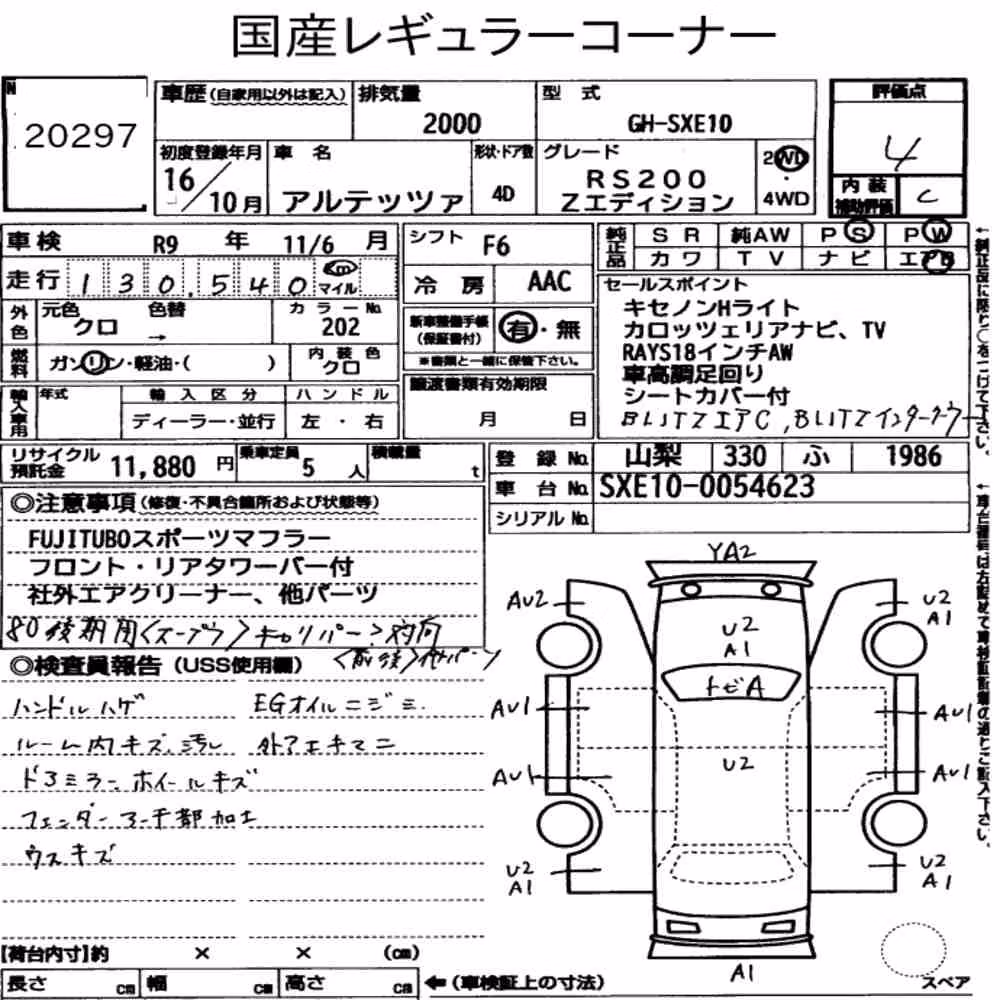 国産レギュラーコーナー
N
20297
車歴(自家用以外は記入)
排気量
2000
型 式
GH-SXE10
評価点
4
内装補助評価
C
初度登録年月
16/10月
車 名
アルテッツァ
形状・ドア数
4D
グレード
RS200
Zエディション
2WD
・
4WD
車検 R9 年 11/6 月
走行 130,540 km マイル
外色
元色
クロ
→
色替
カラーNo.
202
燃料
ガソリン・軽油・( )
内装色
クロ
輸入車用
年式
輸入区分
ディーラー・並行
ハンドル
左・右
シフト F6
冷房 AAC
新車整備手帳(保証書付)
有・無
*書類と一緒に保管下さい。
譲渡書類有効期限
月 日
純正品
SR 純AW PS PW
カワ TV ナビ エアB
セールスポイント
キセノンHライト
カロッツェリアナビ、TV
RAYS18インチAW
車高調足回り
シートカバー付
BLITZエアC,BLITZインタークーラー
リサイクル預託金 11,880 円
乗車定員 5 人
積載量 t
登録No. 山梨 330 ふ 1986
車台No. SXE10-0054623
シリアルNo.
◎注意事項(修復・不具合箇所および状態等)
FUJITUBOスポーツマフラー
フロント・リアタワーバー付
社外エアクリーナー、他パーツ
◎検査員報告(USS使用欄)
ハンドルハゲ
EGオイルニジミ.
ルーム内キズ、汚レ
外アエキマニ
ドアミラー、ホイールキズ
フェンダーアーチ部加工
ウスキズ
YA2
AU2
U2
A1
U2
A1
トビA
AU1
AU1
U2
AU1
AU1
U2
A1
U2
A1
A1
スペア
【荷台内寸】約 × × (cm)
長さ cm 幅 cm 高さ cm ←(車検証上の寸法)